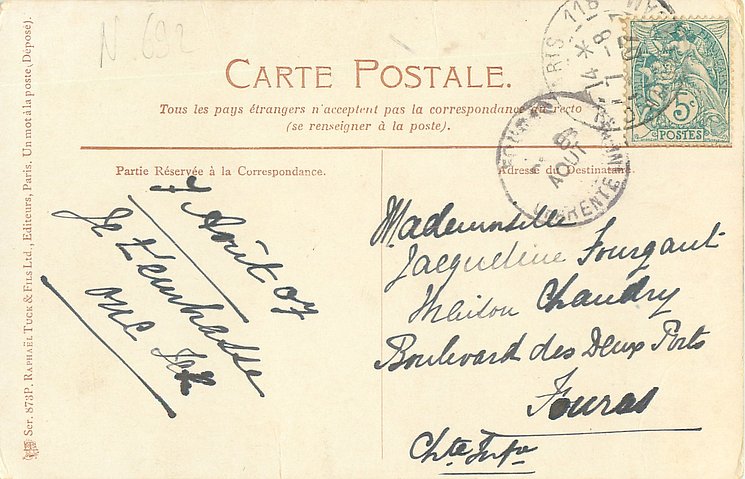 N. 692
CARTE POSTALE.
Tous les pays étrangers n'acceptent pas la correspondance au recto
(se renseigner à la poste).
Partie Réservée à la Correspondance.
Adresse du Destinataire.
Ser. 873P. RAPHAËL TUCK & FILS Ltd., Editeurs, Paris. Un mot à la poste (Déposé).
PARIS 118
5c
POSTES
FOURAS
6
AOUT
CHARENTE
Août 07
Je t'embrasse
Mademoiselle
Jacqueline Fourgaut
Maison Chaudry
Boulevard des Deux Ports
Fouras
Chte Infre